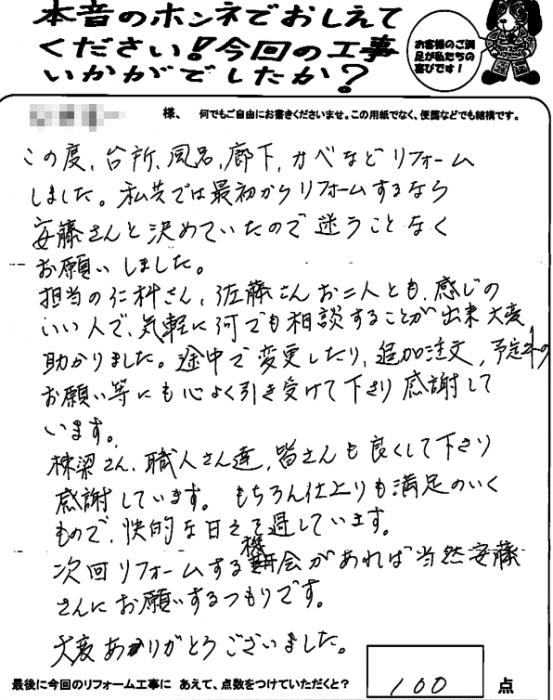 本音のホンネでおしえて
ください！今回の工事
いかがでしたか？
お客様のご満
足が私たちの
喜びです！
様、 何でもご自由にお書きくださいませ。この用紙でなく、便箋などでも結構です。
この度、台所、風呂、廊下、カベなどリフォーム
しました。私共では最初からリフォームするなら
安藤さんと決めていたので迷うことなく
お願いしました。
担当の仁科さん、佐藤さんお二人とも、感じの
いい人で、気軽に何でも相談することが出来大変
助かりました。途中で変更したり、追加注文、予定外の
お願い等にも心よく引き受けて下さり感謝して
います。
棟梁さん、職人さん達、皆さんも良くして下さり
感謝しています。もちろん仕上りも満足のいく
もので、快的な日々を過しています。
次回リフォームする機会があれば当然安藤
さんにお願いするつもりです。
大変ありがとうございました。
最後に今回のリフォーム工事に あえて、点数をつけていただくと？ 100 点